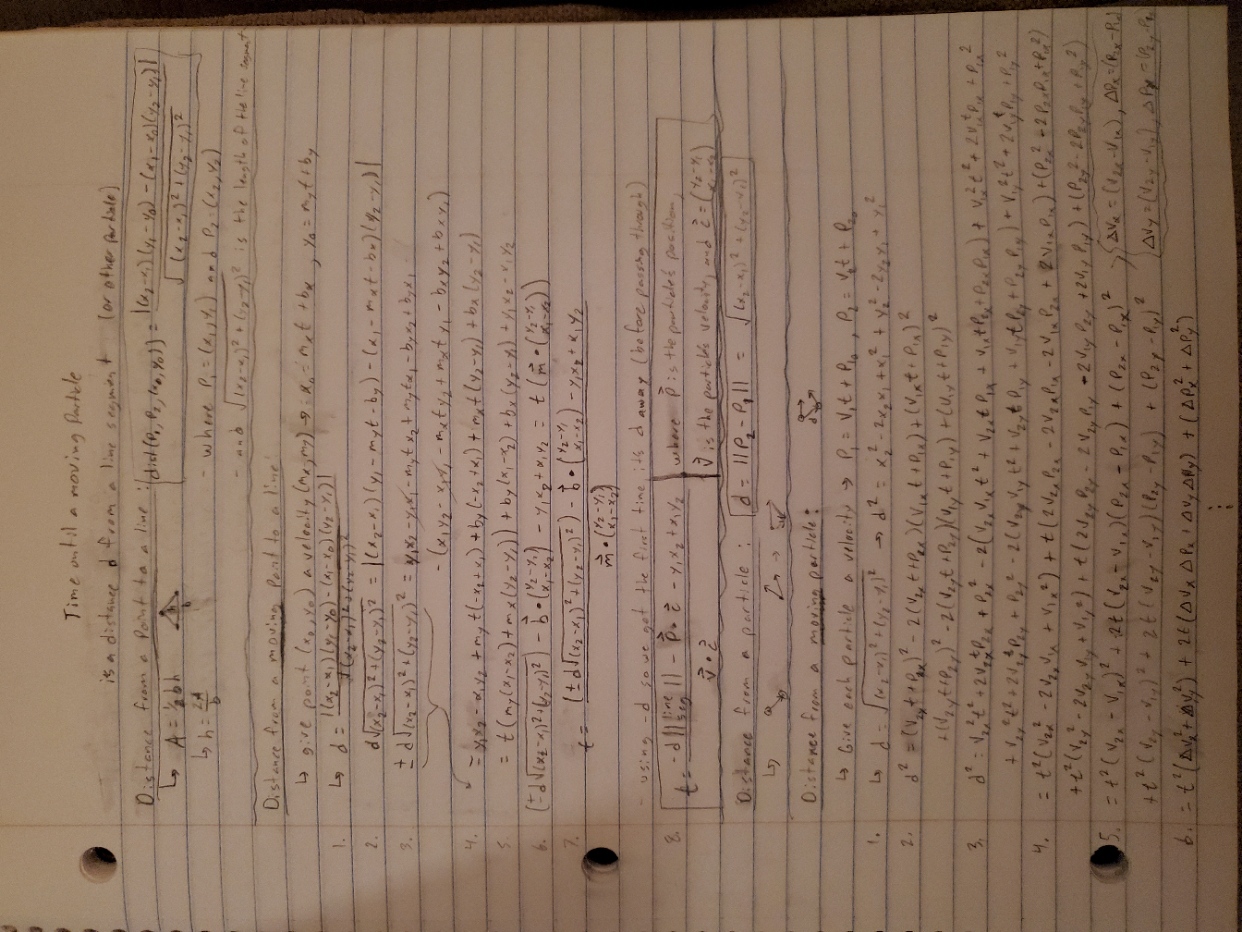 Time until a moving Particle
is a distance d from a line segment (or other particle)
Distance from a Point to a line : dist(P₁, P₂, (x₀, y₀)) = |(x₂-x₁)(y₁-y₀) - (x₁-x₀)(y₂-y₁)| / √((x₂-x₁)²+(y₂-y₁)²)
↳ A = ½bh
↳ h = 2A/b
- where P₁ = (x₁, y₁) and P₂ = (x₂, y₂)
- and √((x₂-x₁)²+(y₂-y₁)²) is the length of the line segment
Distance from a moving Point to a line:
↳ give point (x₀, y₀) a velocity (mx, my) → : x₀ = mxt + bx , y₀ = myt + by
1. ↳ d = |(x₂-x₁)(y₁-y₀) - (x₁-x₀)(y₂-y₁)| / √((x₂-x₁)²+(y₂-y₁)²)
2. d√((x₂-x₁)²+(y₂-y₁)²) = |(x₂-x₁)(y₁-myt-by) - (x₁-mxt-bx)(y₂-y₁)|
3. ± d√((x₂-x₁)²+(y₂-y₁)²) = y₁x₂ - y₁x₁ - mytx₂ + mytx₁ - byx₂ + byx₁
- (x₁y₂ - x₁y₁ - mxty₂ + mxty₁ - bxy₂ + bxy₁)
4. = y₁x₂ - x₁y₂ + myt(-x₂+x₁) + by(-x₂+x₁) + mxt(y₂-y₁) + bx(y₂-y₁)
5. = t(my(x₁-x₂) + mx(y₂-y₁)) + by(x₁-x₂) + bx(y₂-y₁) + y₁x₂ - x₁y₂
6. (±d√((x₂-x₁)²+(y₂-y₁)²)) - b⃗ • (y₂-y₁ x₁-x₂) - y₁x₂ + x₁y₂ = t(m⃗ • (y₂-y₁ x₁-x₂))
7. t = (±d√((x₂-x₁)²+(y₂-y₁)²)) - b⃗ • (y₂-y₁ x₁-x₂) - y₁x₂ + x₁y₂ / m⃗ • (y₂-y₁ x₁-x₂)
- using -d so we get the first time its d away (before passing through)
8. t = -d||line seg|| - p⃗ • c⃗ - y₁x₂ + x₁y₂ / v⃗ • c⃗
where p⃗ is the particle's position,
v⃗ is the particle's velocity, and c⃗ = (y₂-y₁ x₁-x₂)
Distance from a particle : d = ||P₂ - P₁|| = √((x₂-x₁)²+(y₂-y₁)²)
↳ → 
Distance from a moving particle :
↳ Give each particle a velocity → P₁ = V₁t + P₁₀ , P₂ = V₂t + P₂₀
1. ↳ d = √((x₂-x₁)²+(y₂-y₁)²) → d² = x₂² - 2x₂x₁ + x₁² + y₂² - 2y₂y₁ + y₁²
2. d² = (V₂xt+P₂x)² - 2(V₂xt+P₂x)(V₁xt+P₁x) + (V₁xt+P₁x)²
+(V₂yt+P₂y)² - 2(V₂yt+P₂y)(V₁yt+P₁y) + (V₁yt+P₁y)²
3. d² = V₂x²t² + 2V₂xtP₂x + P₂x² - 2(V₂xV₁xt² + V₂xtP₁x + V₁xtP₂x + P₂xP₁x) + V₁x²t² + 2V₁xtP₁x + P₁x²
+ V₂y²t² + 2V₂ytP₂y + P₂y² - 2(V₂yV₁yt² + V₂ytP₁y + V₁ytP₂y + P₂yP₁y) + V₁y²t² + 2V₁ytP₁y + P₁y²
4. = t²(V₂x² - 2V₂xV₁x + V₁x²) + t(2V₂xP₂x - 2V₂xP₁x - 2V₁xP₂x + 2V₁xP₁x) + (P₂x² - 2P₂xP₁x + P₁x²)
+t²(V₂y² - 2V₂yV₁y + V₁y²) + t(2V₂yP₂y - 2V₂yP₁y - 2V₁yP₂y + 2V₁yP₁y) + (P₂y² - 2P₂yP₁y + P₁y²)
5. = t²(V₂x - V₁x)² + 2t(V₂x - V₁x)(P₂x - P₁x) + (P₂x - P₁x)² , ΔVx = (V₂x - V₁x), ΔPx = (P₂x - P₁x)
+t²(V₂y - V₁y)² + 2t(V₂y - V₁y)(P₂y - P₁y) + (P₂y - P₁y)² ΔVy = (V₂y - V₁y), ΔPy = (P₂y - P₁
6. = t²(ΔVx² + ΔVy²) + 2t(ΔVxΔPx + ΔVyΔPy) + (ΔPx² + ΔPy²)